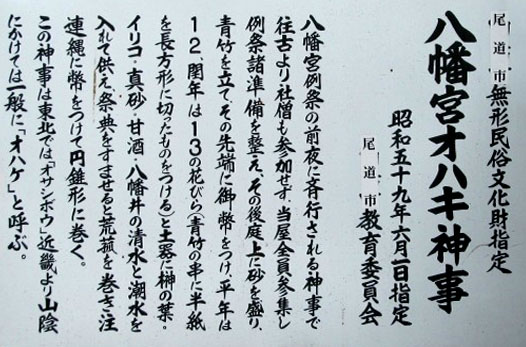 尾道市無形民俗文化財指定
八幡宮オハキ神事
昭和五十九年六月一日指定
尾道市教育委員会
八幡宮例祭の前夜に斉行される神事で
往古より社僧も参加せず、当屋全員参集し
例祭諸準備を整え、その後庭上に砂を盛り、
青竹を立て、その先端に御幣をつけ、平年は
12、閏年は13の花びら(青竹の串に半紙
を長方形に切ったものをつける)と土器に榊の葉。
イリコ・真砂・甘酒・八幡井の清水と潮水を
入れて供え祭典をすませると荒菰を巻き注
連縄に幣をつけて円錐形に巻く。
この神事は東北では「オサシボウ」近畿より山陰
にかけては一般に「オハケ」と呼ぶ。